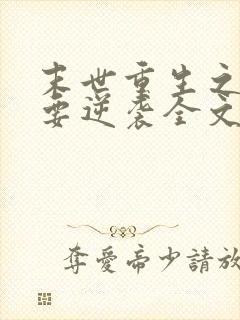 末世重生之
要逆袭全文
奪愛帝少請放